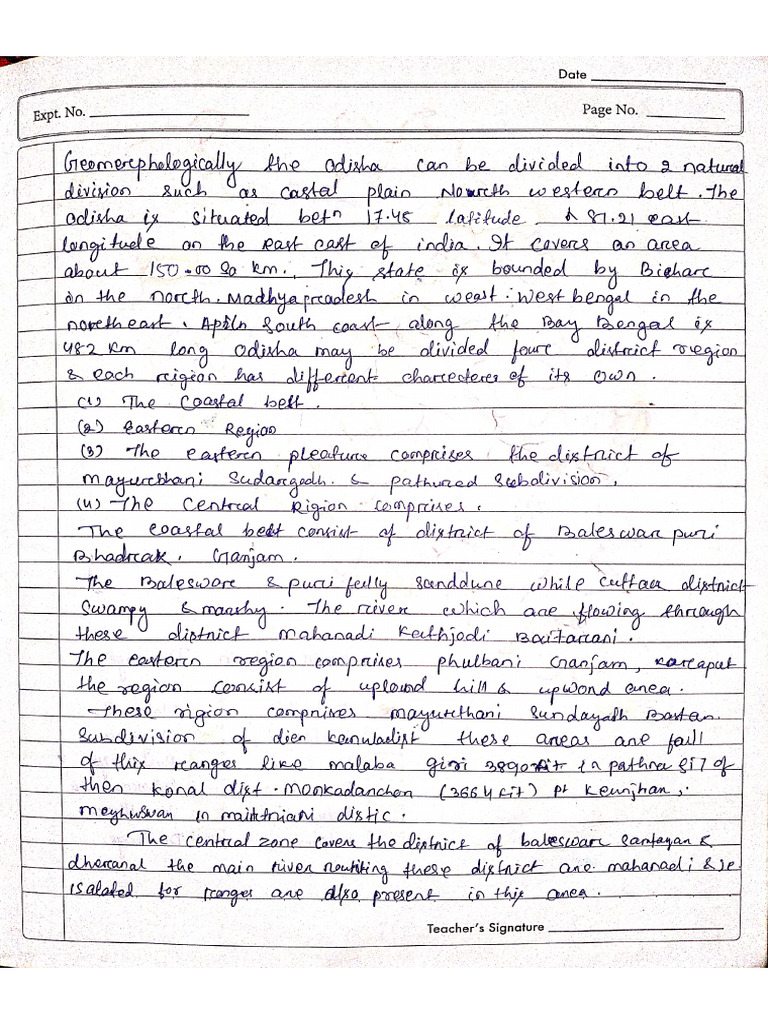 Date
Expt. No.
Page No.
Geomorephologically the odisha can be divided into 2 natural
division such as castal plain Noreth western belt. The
odisha is situated betn 17.45 latitude & 87.21 east
longitude on the east cast of india. It covers an area
about 150.00 Sq km., This state is bounded by Bighare
on the noreth. Madhyapreadesh in weast. West bengal in the
noretheast. South coast along the Bay Bengal is
482 km long Odisha may be divided foure district region
& each reigion has different charecteres of its own.
(1) The Coastal belt.
(2) Eastern Region
(3) The eastern pleature comprises the district of
mayurebhani Sudargodh. & pathured Subdivision.
(4) The Central Rigion comprises.
The coastal beet consist of district of Baleswar puri
Bhadreak. Ganjam.
The Balesware & puri fully sanddune while cuttack district
Swampy & marshy. The river which are flowing through
these district mahanadi Kathjodi Baitarani.
The eastern region comprises phulbani Ganjam, Koraput
the region consist of uplound hill & upwond area.
These rigion comprises mayurebhani Sundayadh Bastan.
Subdivision of these areas are full
of this ranges like malaba giri 3890 in of
then district. (3664 fit) pt Keunjhan,
in distic.
The central zone covers the district of balesware &
dherecanal the main river these district are mahanadi &
isalated for ranges are also present in this area.
Teacher's Signature